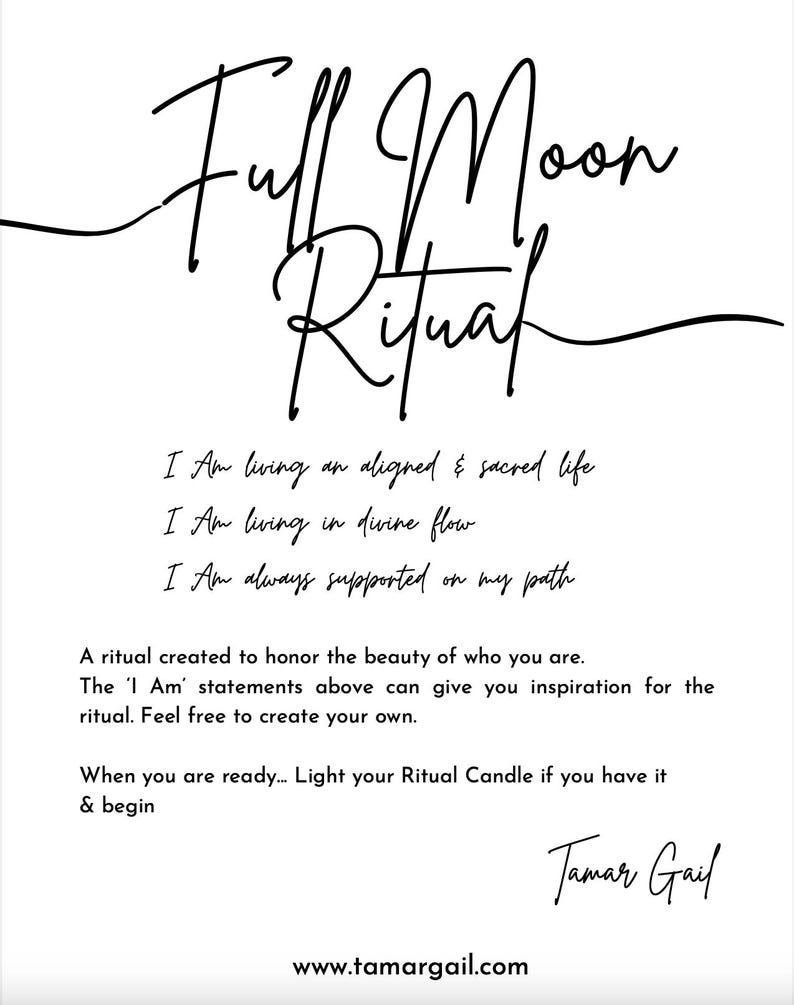 Full Moon
Ritual
I Am living an aligned & sacred life
I Am living in divine flow
I Am always supported on my path
A ritual created to honor the beauty of who you are.
The ‘I Am’ statements above can give you inspiration for the
ritual. Feel free to create your own.
When you are ready... Light your Ritual Candle if you have it
& begin
Tamar Gail
www.tamargail.com